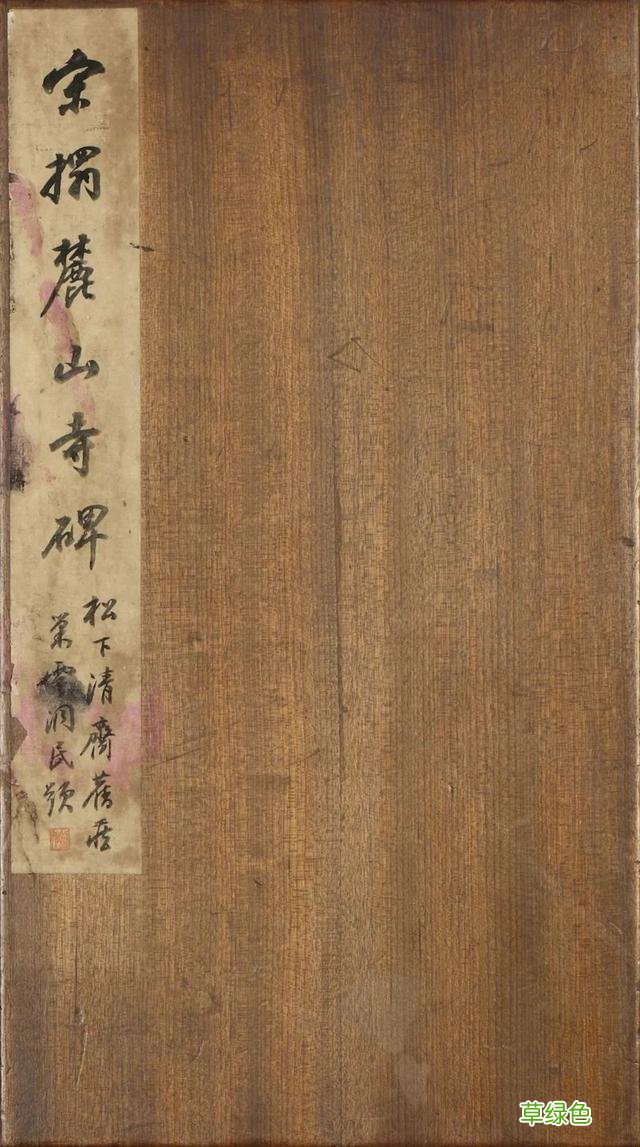 宋搨麓山寺碑
松下清齋舊藏
巢雲洞民題
草绿色